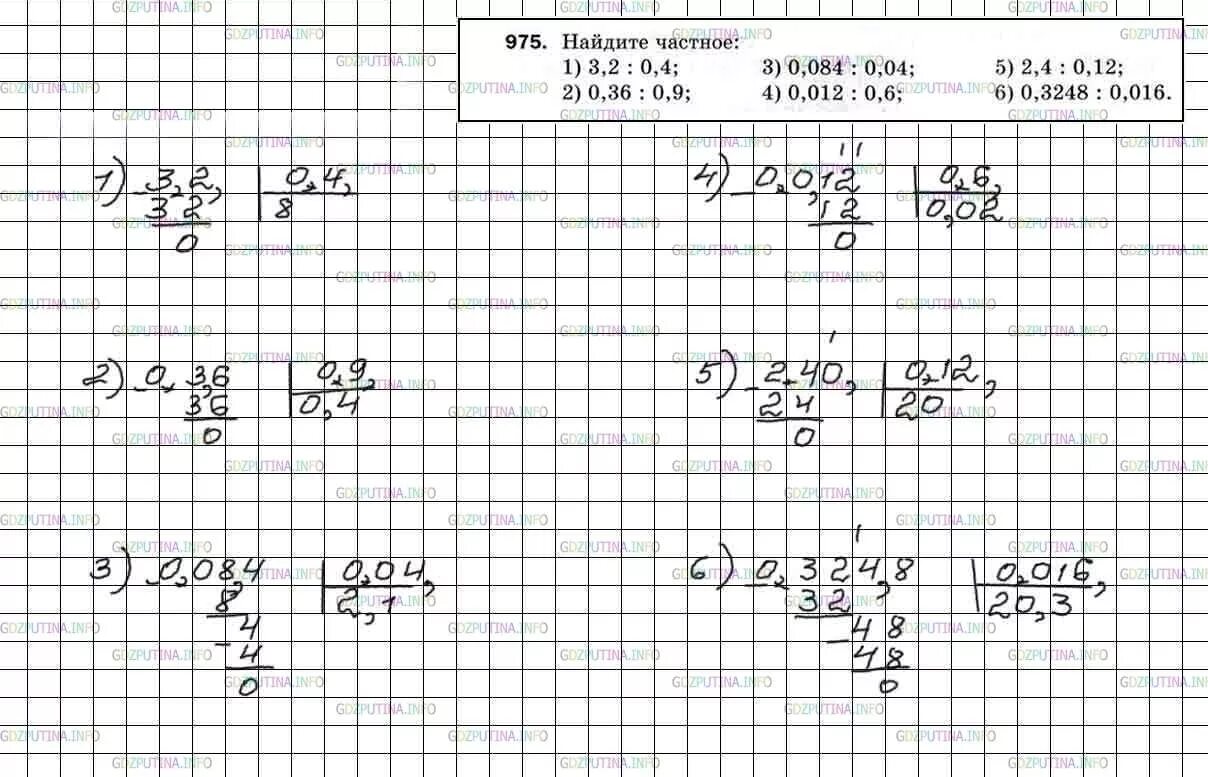 975. Найдите частное:
1) 3,2 : 0,4; 3) 0,084 : 0,04; 5) 2,4 : 0,12;
2) 0,36 : 0,9; 4) 0,012 : 0,6; 6) 0,3248 : 0,016.
1) 3,2, 0,4,
32 8
0
2) 0,3,6 0,9,
36 0,4
0
3) 0,08,4 0,04,
8 2,1
4
4
0
4) 0,0,12 0,6,
12 0,02
0
5) 2,40, 0,12,
24 20
0
6) 0,324,8 0,016,
32 20,3
48
48
0
GDZPUTINA.INFO